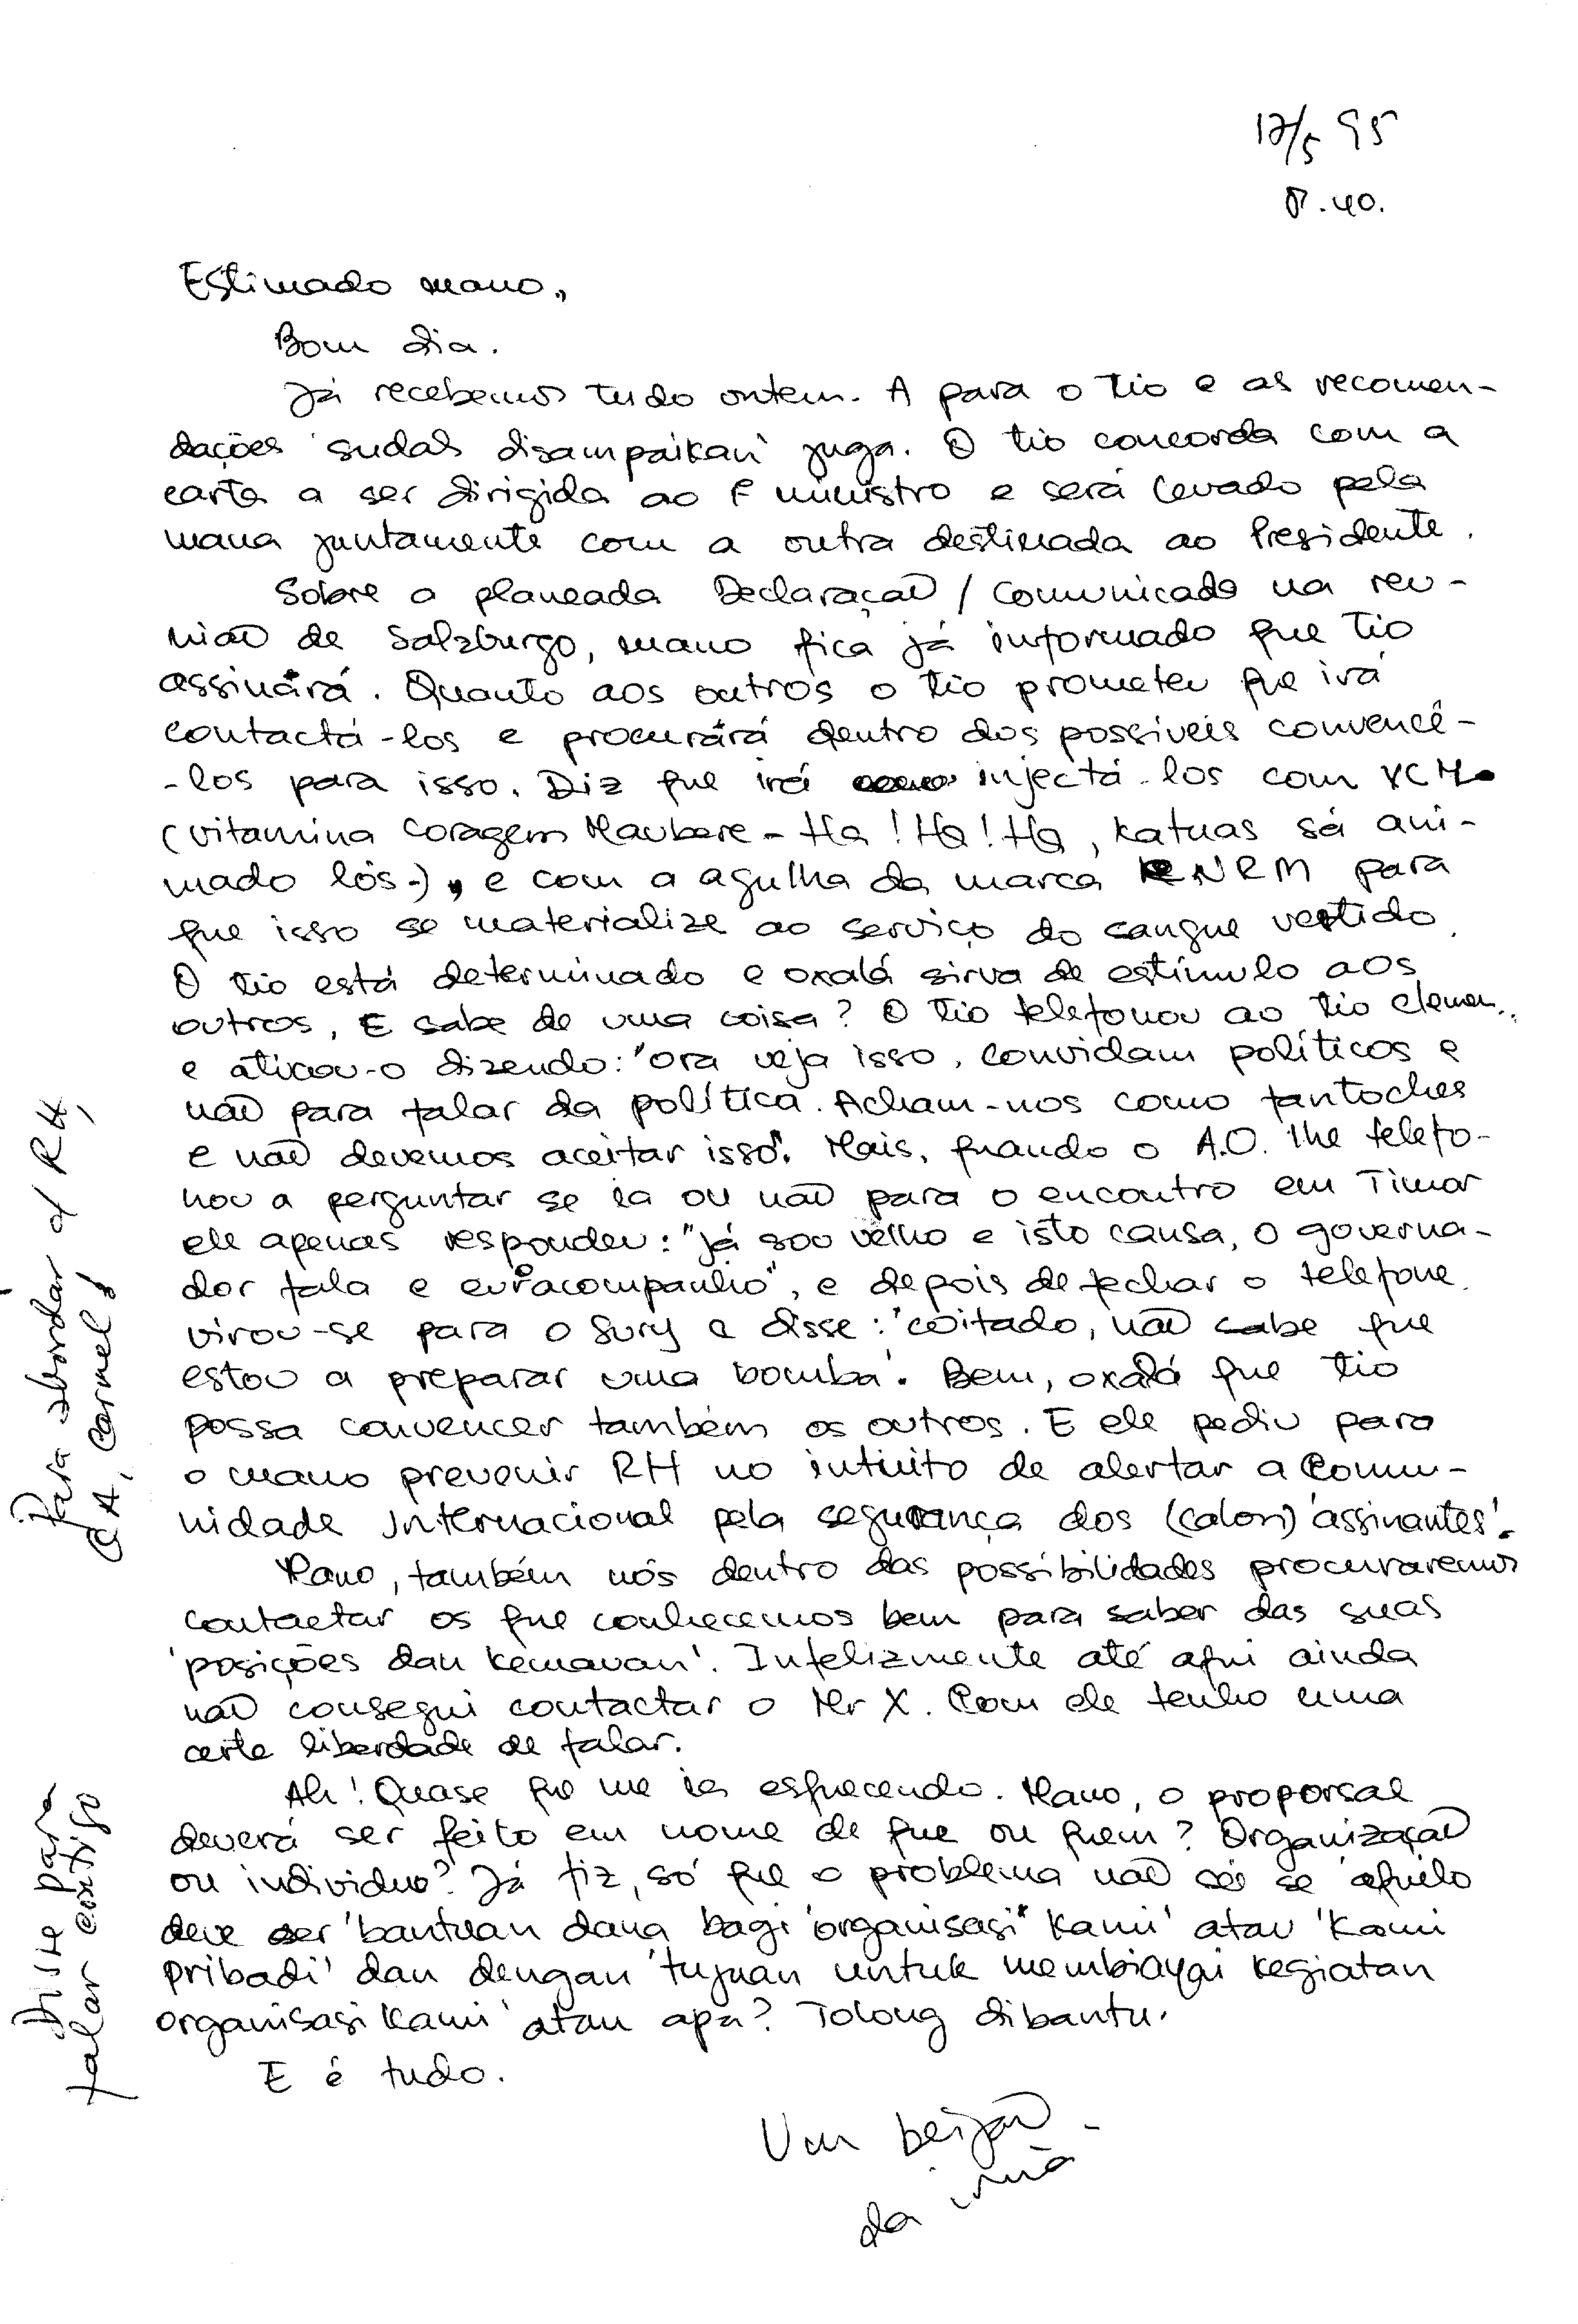 17/5 95
8.40.
Estimado mano,,
Bom dia.
Já recebemos tudo ontem. A para o tio e as recomen-
dações 'sudah disampaikan' juga. O tio concorda com a
carta a ser dirigida ao 1º ministro e será levado pela
mana juntamente com a outra destinada ao Presidente.
Sobre a planeada Declaração / Comunicado na reu-
nião de Salzburgo, mano fica já informado que tio
assinará. Quanto aos outros o tio prometeu que irá
contactá-los e procurará dentro dos possíveis convencê-
-los para isso. Diz que irá injectá-los com VCM.
(vitamina coragem Maubere - Ha! Ha! Ha, katuas sá ani-
mado lós-), e com a agulha da marca CNRM para
que isso se materialize ao serviço do sangue vertido.
O tio está determinado e oxalá sirva de estímulo aos
outros. E sabe de uma coisa? O tio telefonou ao tio Clemen..
e atiçou-o dizendo: "ora veja isso, convidam políticos e
não para falar da política. Acham-nos como fantoches
e não devemos aceitar isso". Mais, quando o A.O. lhe telefo-
nou a perguntar se ia ou não para o encontro em Timor
ele apenas respondeu: "já sou velho e isto causa, o governa-
dor fala e eu acompanho", e depois de fechar o telefone
virou-se para o Sury e disse: 'coitado, não sabe que
estou a preparar uma bomba'. Bem, oxalá que tio
possa convencer também os outros. E ele pediu para
o mano prevenir RH no intuito de alertar a Comu-
nidade Internacional pela segurança dos (calon) 'assinantes'.
Mano, também nós dentro das possibilidades procuraremos
contactar os que conhecemos bem para saber das suas
'posições dan kemauan'. Infelizmente até aqui ainda
não consegui contactar o Mr X. Com ele tenho uma
certa liberdade de falar.
Ah! Quase que me ia esquecendo. Mano, o proporsal
deverá ser feito em nome de que ou quem? Organização
ou individuo? Já fiz, só que o problema não sei se aquilo
deve ser 'bantuan dana bagi organisasi kami' atau 'kami
pribadi' dan dengan 'tujuan untuk membiayai kegiatan
organisasi kami' atau apa? Tolong dibantu.
E é tudo.
Um beijão
da irmã
Para abordar c/ RH,
CA, Carmel!
Disse para
falar contigo